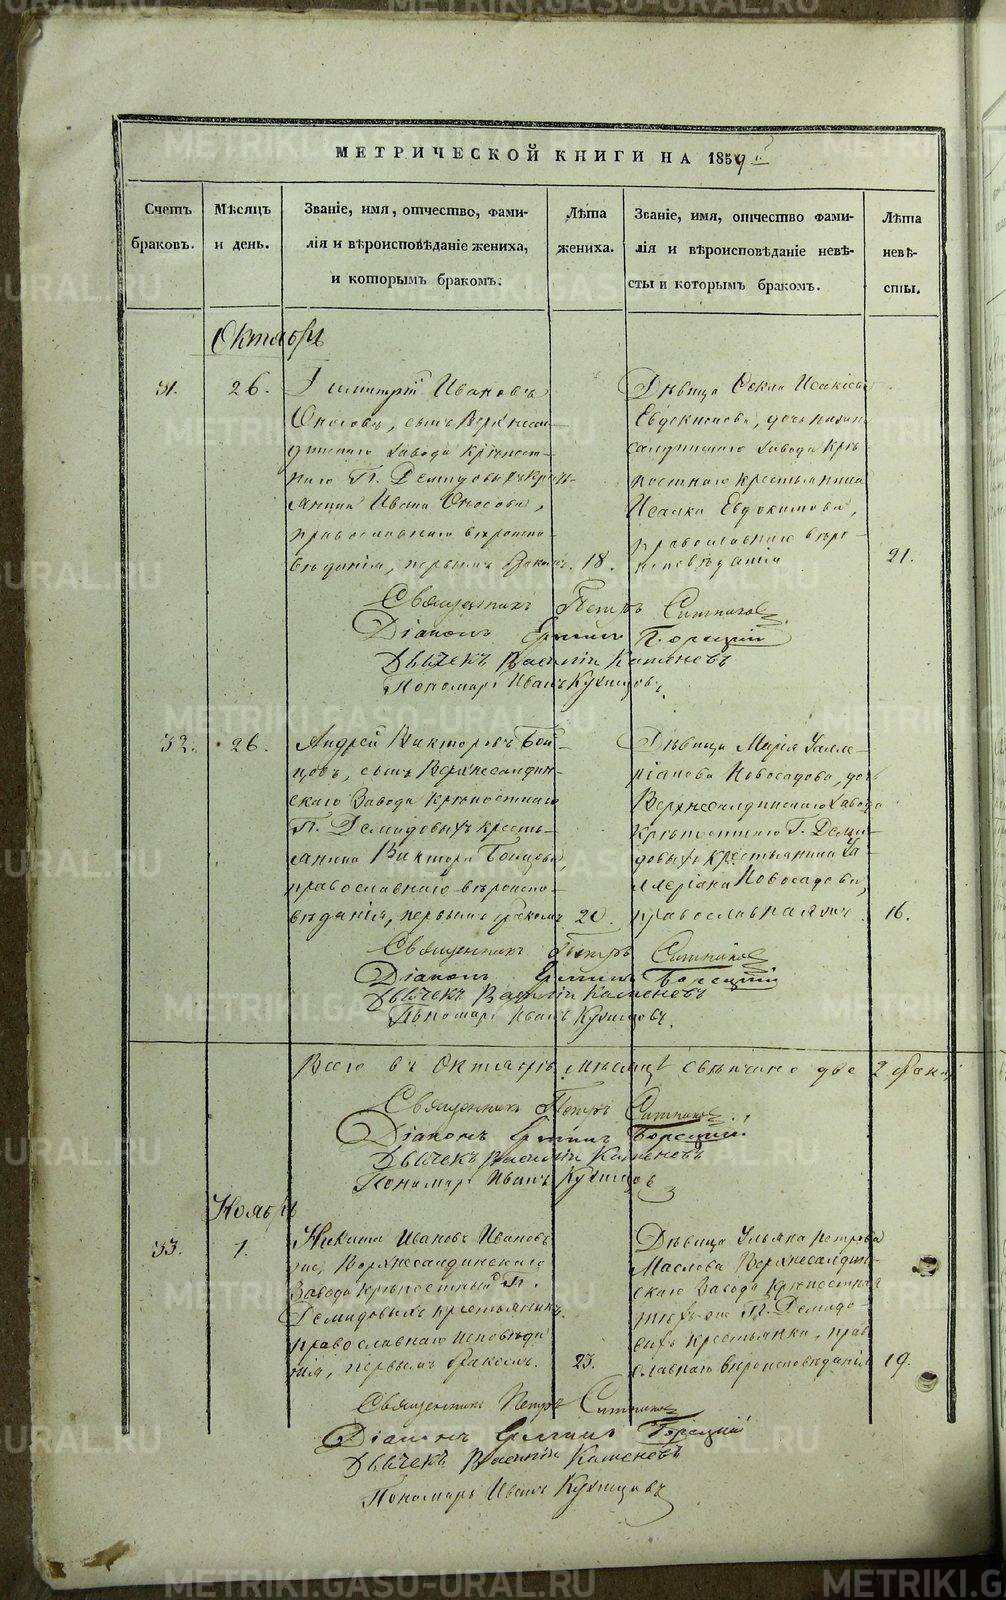 МЕТРИЧЕСКОЙ КНИГИ НА 1859 г.
Счетъ браковъ.
Мѣсяцъ и день.
Званіе, имя, отчество, фами-
лія и вѣроисповѣданіе жениха,
и которымъ бракомъ.
Лѣта жениха.
Званіе, имя, отчество фами-
лія и вѣроисповѣданіе невѣ-
сты и которымъ бракомъ.
Лѣта невѣ-
сты.
Октябрь
31.
26.
Димитрій Ивановъ
сынъ Верхнесал-
динскаго завода крѣпост-
наго Г. Демидовыхъ кресть-
янина Ивана
православнаго вѣроиспо-
вѣданія, первымъ бракомъ.
18.
Дѣвица Ѳекла Исакіева
Евдокимова, дочь нижне-
салдинскаго завода крѣ-
постнаго крестьянина
Исакія Евдокимова,
православнаго вѣро-
исповѣданія
21.
Священникъ Петръ
Діаконъ
Дьячекъ Василій Каменевъ
Пономарь Иванъ
32.
26.
Андрей Викторовъ Бой-
цовъ, сынъ Верхнесалдин-
скаго завода крѣпостнаго
Г. Демидовыхъ кресть-
янина Виктора Бойцова,
православнаго вѣроиспо-
вѣданія, первымъ бракомъ
20.
Дѣвица Марія Уалле-
ріанова Новосадова, дочь
Верхнесалдинскаго завода
крѣпостнаго Г. Деми-
довыхъ крестьянина Уа-
ллеріана Новосадова,
православная
16.
Священникъ Петръ
Діаконъ
Дьячекъ Василій Каменевъ
Пономарь Иванъ
Всего въ Октябрѣ мѣсяцѣ свѣнчано два 2 брака
Священникъ Петръ
Діаконъ
Дьячекъ Василій Каменевъ
Пономарь Иванъ
Ноябрь
33.
1.
Никита Ивановъ
Верхнесалдинскаго
завода крѣпостный Г.
Демидовыхъ крестьянинъ
православнаго исповѣда-
нія, первымъ бракомъ.
23.
Дѣвица Ульяна Петрова
Маслова Верхнесалдин-
скаго завода крѣпостная
Г. Демидо-
выхъ крестьянка, прав
славнаго вѣроисповѣданія
19.
Священникъ Петръ
Діаконъ
Дьячекъ Василій Каменевъ
Пономарь Иванъ
METRIKI.GASO-URAL.RU